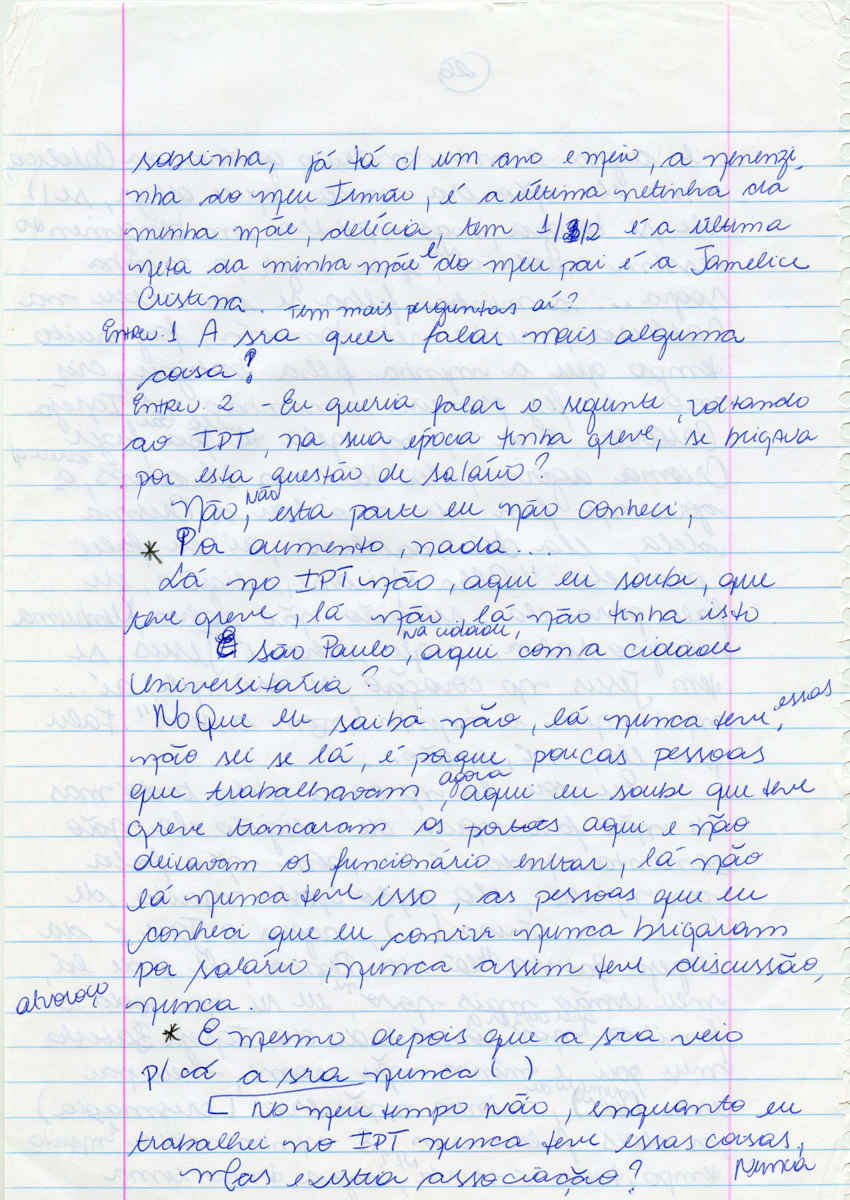 sobrinha, já tá c/ um ano e meio, a nenenzi
nha do meu Irmão, é a última netinha da
minha mãe, delícia, tem 1/2 é a última
neta da minha mãe e do meu pai é a Jamelice
Cristina. Tem mais perguntas aí?
Entrev. 1 A sra quer falar mais alguma
coisa?
Entrev. 2 - Eu queria falar o seguinte, voltando
ao IPT, na sua época tinha greve, se brigava
por esta questão de salário?
Não, não esta parte eu não conheci,
* Por aumento, nada...
Lá no IPT não, aqui eu soube, que
teve greve, lá não, lá não tinha isto
É São Paulo, na cidade, aqui com a cidade
Universitária?
No Que eu saiba não, lá nunca teve, essas
não sei se lá, é porque poucas pessoas
que trabalhavam, agora aqui eu soube que teve
greve trancaram os portões aqui e não
deixavam os funcionário entrar, lá não
lá nunca teve isso, as pessoas que eu
conheci que eu convivi nunca brigaram
por salário, nunca assim teve discussão,
alvoroço nunca.
* E mesmo depois que a sra veio
p/ cá a sra nunca ( )
[ No meu tempo não, enquanto eu
trabalhei no IPT nunca teve essas coisas,
Nunca
Mas existia associação?